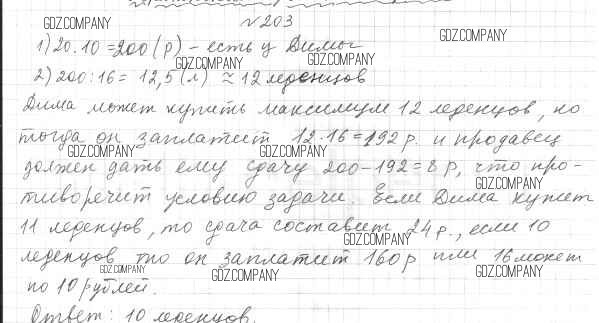 №203
GDZ.COMPANY
GDZ.COMPANY
1) 20·10=200(р) – есть у Димы
GDZ.COMPANY
GDZ.COMPANY
2) 200:16 = 12,5(л) ≈ 12 леденцов
Дима может купить максимум 12 леденцов, но
тогда он заплатит 12·16=192 р. и продавец
GDZ.COMPANY
GDZ.COMPANY
должен дать ему сдачу 200-192=8 р, что про-
GDZ.COMPANY
тиворечит условию задачи. Если Дима купит
11 леденцов, то сдача составит 24 р., если 10
GDZ.COMPANY
леденцов то он заплатит 160 р или 16 монет
GDZ.COMPANY
GDZ.COMPANY
GDZ.COMPANY
по 10 рублей.
Ответ: 10 леденцов.